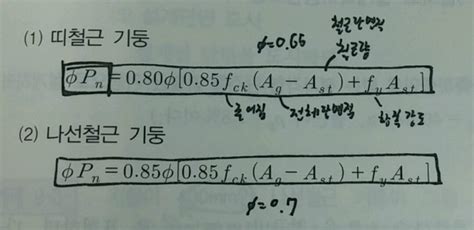 철근단면적
(1) 띠철근 기둥 ϕ=0.65 철근량
ϕPn = 0.80ϕ[0.85fck(Ag−Ast)+fyAst]
전체단면적 항복강도
(2) 나선철근 기둥
ϕPn = 0.85ϕ[0.85fck(Ag−Ast)+fyAst]
ϕ=0.7